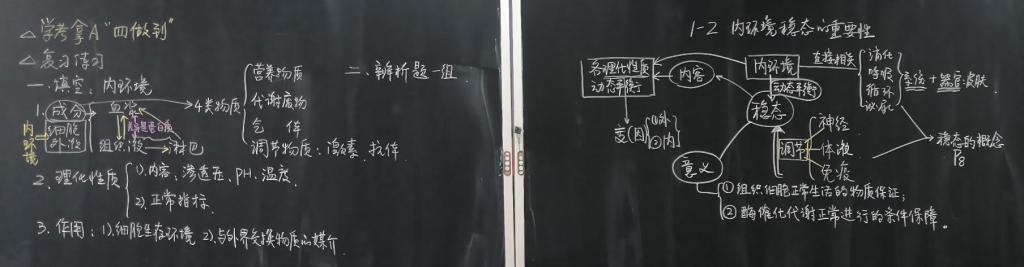 △学考拿A"四做到"
△复习练习
一、填空：内环境
1. 成分 血浆
细胞外液
内环境
组织液
淋巴
4类物质
营养物质
代谢废物
气体
调节物质：激素、抗体
2. 理化性质
1).内容、渗透压、PH、温度.
2).正常指标.
3. 作用：1).细胞生存环境 2).与外界交换物质的媒介
二、辨析题一组
1-2 内环境稳态的重要性
各理化性质
动态平衡
内容
内环境
直接相关
消化
呼吸
循环
泌尿
系统+器官:皮肤
动态平衡
稳态
变(因)
①外
②内
调节
神经
体液
免疫
稳态的概念
P8
意义
①组织细胞正常生活的物质保证;
②酶催化代谢正常进行的条件保障。